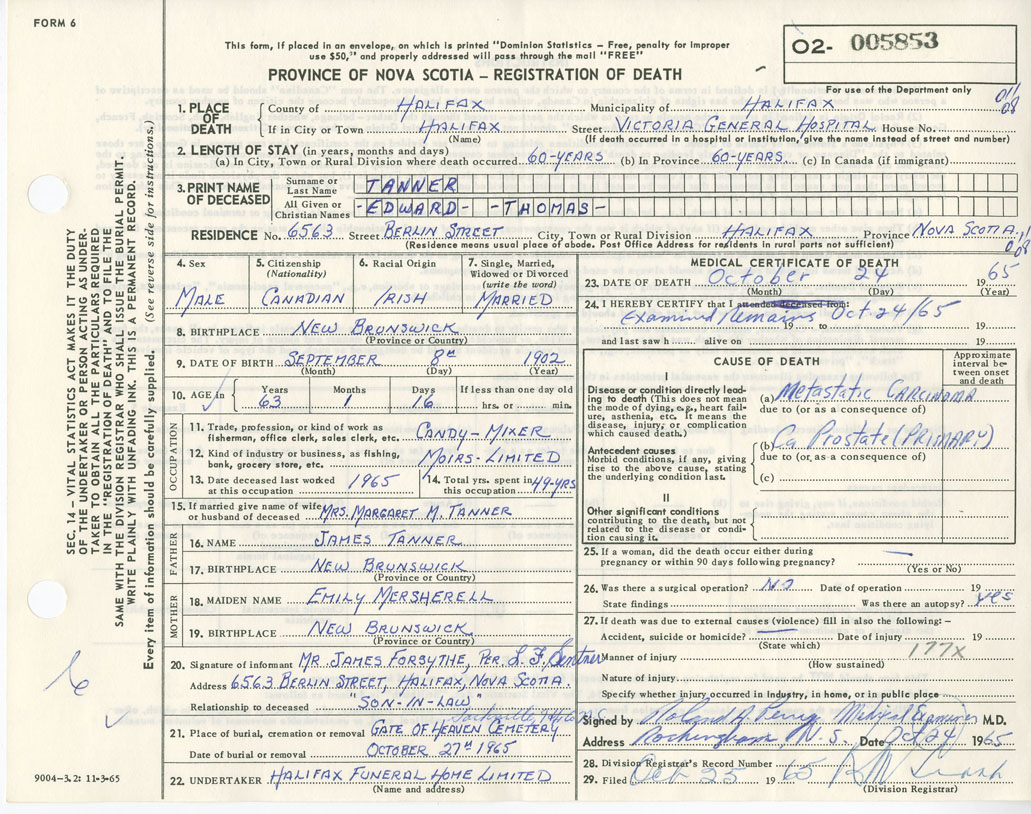 FORM 6
This form, if placed in an envelope, on which is printed "Dominion Statistics – Free, penalty for improper
use $50," and properly addressed will pass through the mail "FREE"
PROVINCE OF NOVA SCOTIA – REGISTRATION OF DEATH
02- 005853
For use of the Department only
1. PLACE OF DEATH
County of HALIFAX Municipality of HALIFAX
If in City or Town HALIFAX Street VICTORIA GENERAL HOSPITAL House No.
(Name) (If death occurred in a hospital or institution, give the name instead of street and number)
2. LENGTH OF STAY (in years, months and days)
(a) In City, Town or Rural Division where death occurred 60-YEARS (b) In Province 60-YEARS (c) In Canada (if immigrant)
3. PRINT NAME OF DECEASED
Surname or Last Name TANNER
All Given or Christian Names -EDWARD- -THOMAS-
RESIDENCE No. 6563 Street BERLIN STREET City, Town or Rural Division HALIFAX Province NOVA SCOTIA
(Residence means usual place of abode. Post Office Address for residents in rural parts not sufficient)
4. Sex
MALE
5. Citizenship
(Nationality)
CANADIAN
6. Racial Origin
IRISH
7. Single, Married,
Widowed or Divorced
(write the word)
MARRIED
8. BIRTHPLACE NEW BRUNSWICK
(Province or Country)
9. DATE OF BIRTH SEPTEMBER 8TH 1902
(Month) (Day) (Year)
10. AGE in
Years Months Days If less than one day old
63 1 16 hrs. or min.
OCCUPATION
11. Trade, profession, or kind of work as
fisherman, office clerk, sales clerk, etc. CANDY-MIXER
12. Kind of industry or business, as fishing,
bank, grocery store, etc. MOIRS-LIMITED
13. Date deceased last worked
at this occupation 1965
14. Total yrs. spent in
this occupation 49-YRS
15. If married give name of wife
or husband of deceased MRS. MARGARET M. TANNER
FATHER
16. NAME JAMES TANNER
17. BIRTHPLACE NEW BRUNSWICK
(Province or Country)
MOTHER
18. MAIDEN NAME EMILY MERSHERELL
19. BIRTHPLACE NEW BRUNSWICK
(Province or Country)
20. Signature of informant MR JAMES FORSYTHE, PER L.F.
Address 6563 BERLIN STREET, HALIFAX, NOVA SCOTIA.
Relationship to deceased "SON-IN-LAW"
21. Place of burial, cremation or removal GATE OF HEAVEN CEMETERY
Date of burial or removal OCTOBER 27TH 1965
22. UNDERTAKER HALIFAX FUNERAL HOME LIMITED
(Name and address)
MEDICAL CERTIFICATE OF DEATH
23. DATE OF DEATH October 24 1965
(Month) (Day) (Year)
24. I HEREBY CERTIFY that I attended deceased from:
Examined Remains Oct. 24/65
19 to 19
and last saw h alive on 19
CAUSE OF DEATH
Approximate
interval between
onset
and death
I
Disease or condition directly leading
to death (This does not
mean the mode of dying, e.g., heart failure,
asthenia, etc. It means the
disease, injury, or complication
which caused death.)
(a) Metastatic CARCINOMA
due to (or as a consequence of)
Antecedent causes
Morbid conditions, if any, giving
rise to the above cause, stating
the underlying condition last.
(b) Ca Prostate (PRIMARY)
due to (or as a consequence of)
(c)
II
Other significant conditions
contributing to the death, but not
related to the disease or condition
causing it.
25. If a woman, did the death occur either during
pregnancy or within 90 days following pregnancy? —
(Yes or No)
26. Was there a surgical operation? NO Date of operation 19
State findings Was there an autopsy? yes
27. If death was due to external causes (violence) fill in also the following:–
Accident, suicide or homicide? — Date of injury 19
(State which)
177X
Manner of injury
(How sustained)
Nature of injury
Specify whether injury occurred in industry, in home, or in public place
Signed by Roland A. Perry Medical Examiner M.D.
Address Rockingham, N.S. Date Oct 24 1965
28. Division Registrar's Record Number
29. Filed Oct 25 1965
(Division Registrar)
SEC. 14 – VITAL STATISTICS ACT MAKES IT THE DUTY
OF THE UNDERTAKER OR PERSON ACTING AS UNDERTAKER
TO OBTAIN ALL THE PARTICULARS REQUIRED
IN THE "REGISTRATION OF DEATH" AND TO FILE THE
SAME WITH THE DIVISION REGISTRAR WHO SHALL ISSUE THE BURIAL PERMIT.
WRITE PLAINLY WITH UNFADING INK. THIS IS A PERMANENT RECORD.
Every item of information should be carefully supplied. (See reverse side for instructions.)
9004-3.2: 11-3-65